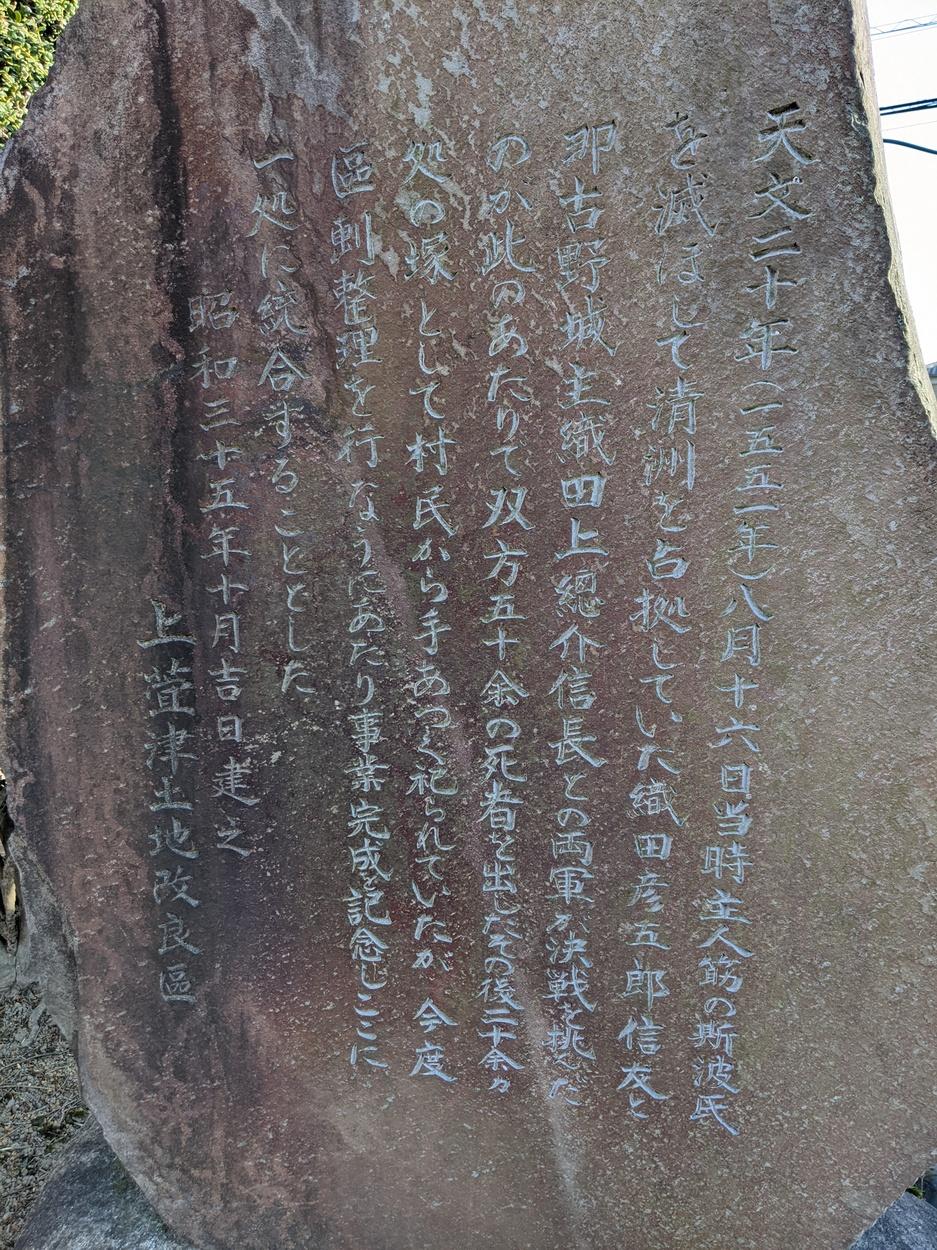 天文二十年(一五五一年)八月十六日当時主人筋の斯波氏
を滅ほして清洲を占拠していた織田彦五郎信友と
那古野城主織田上總介信長との両軍が決戦を挑んだ
のが此のあたりで双方五十余の死者を出したその後二十余ヶ
処の塚として村民から手あつく祀られていたが今度
區劃整理を行なうにあたり事業完成を記念しここに
一処に統合することとした
昭和三十五年十月吉日建之
上萱津土地改良區